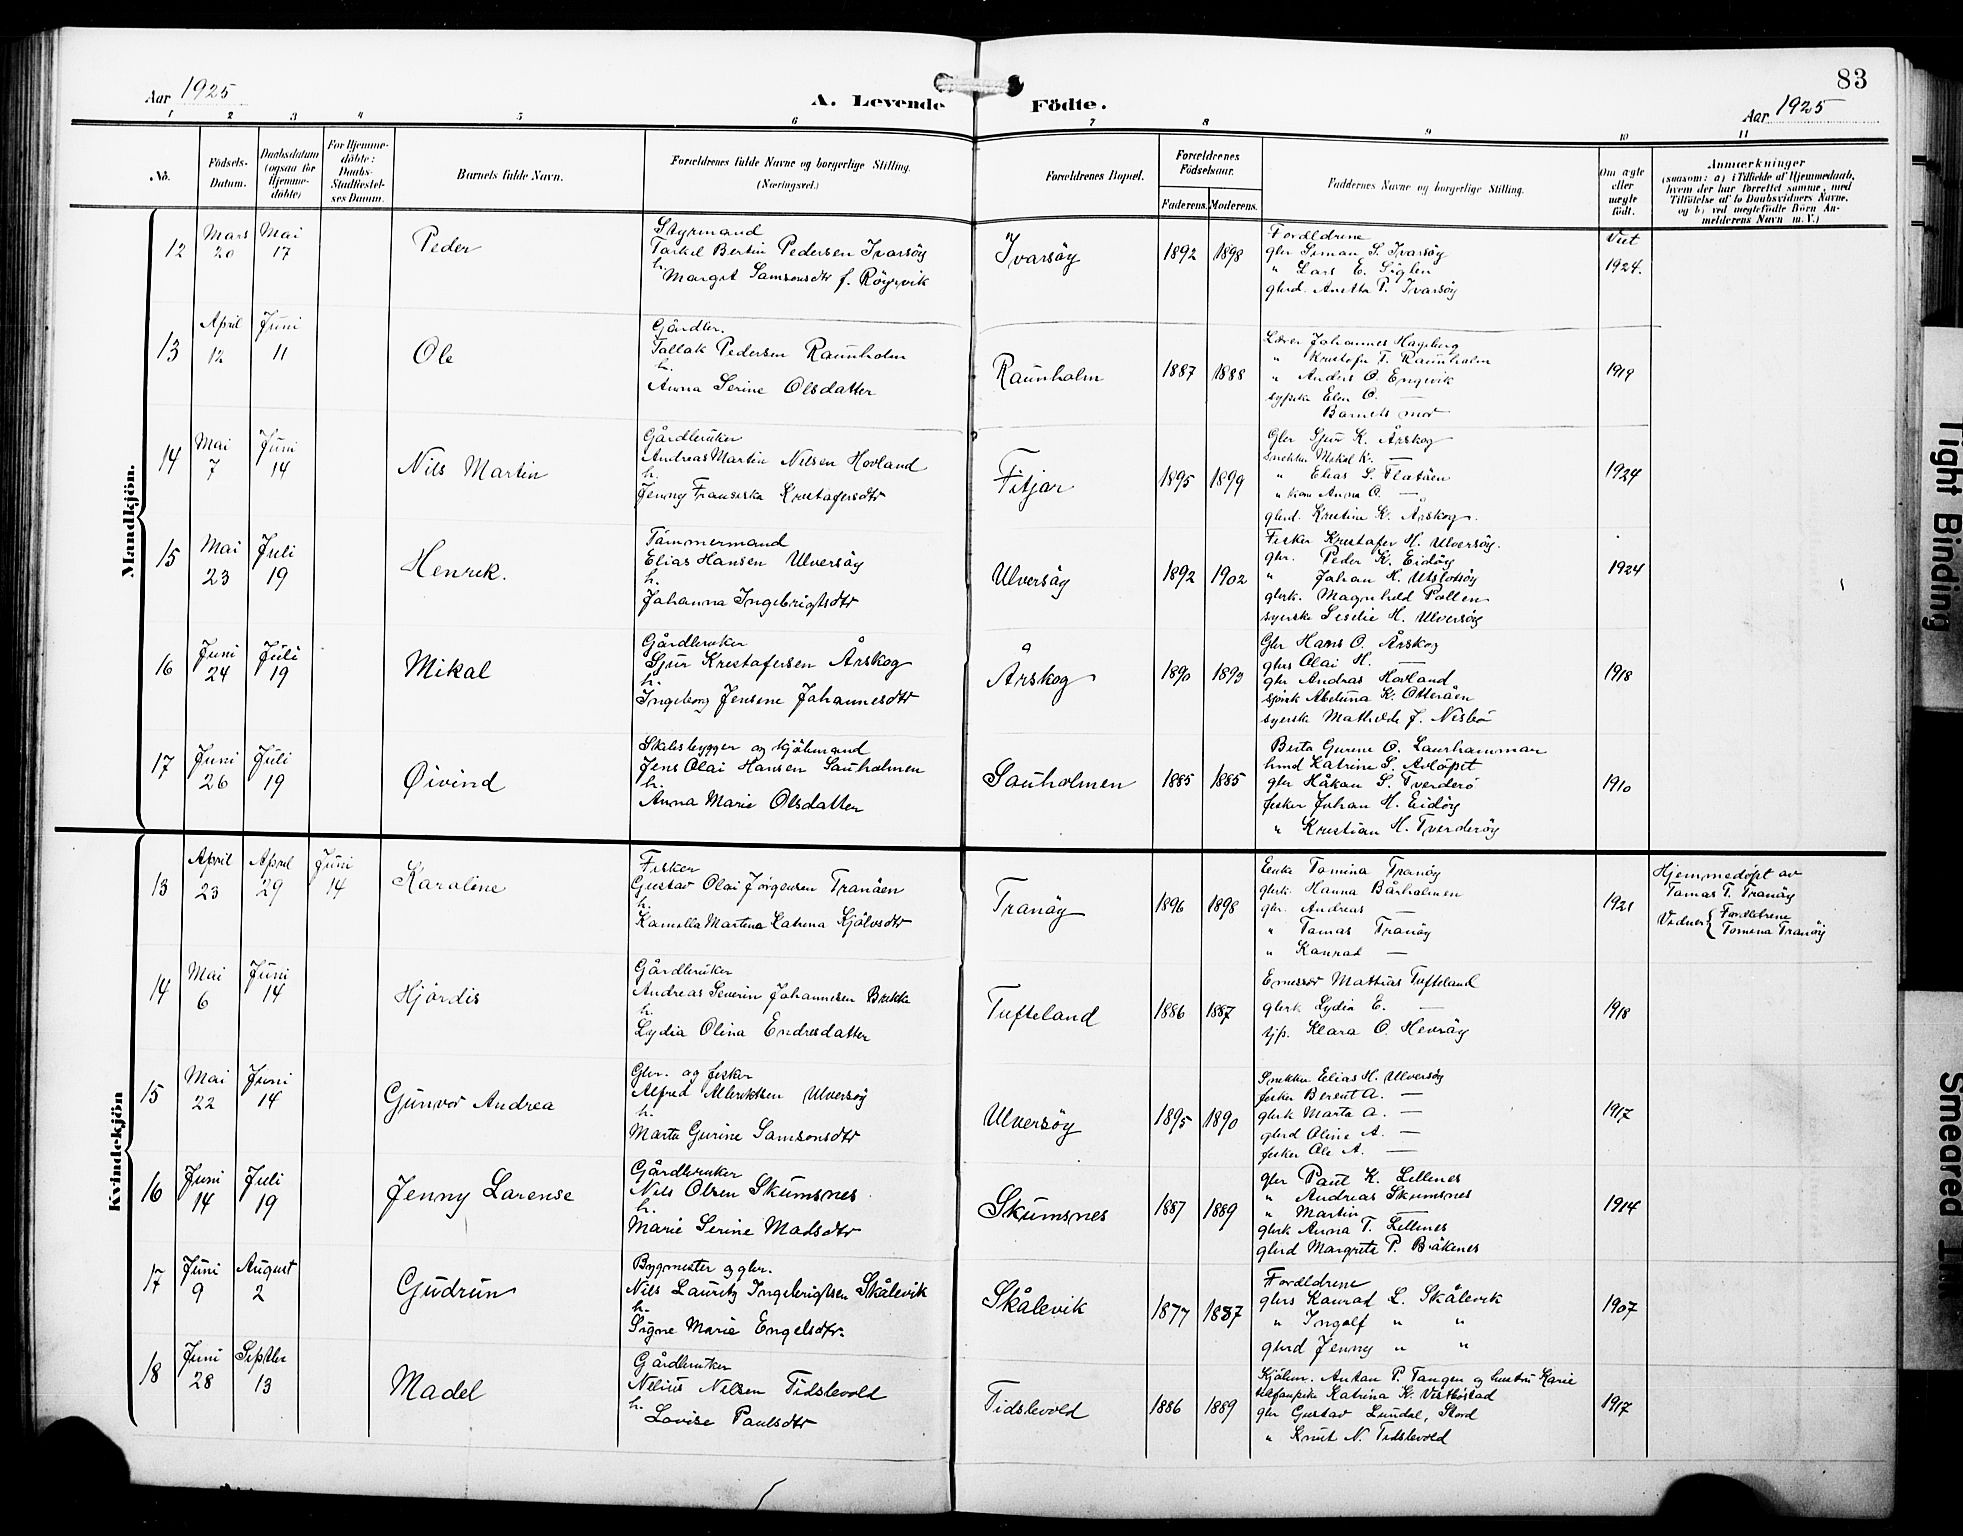 83
Aar 1925
A. Levende Födte.
Aar 1925
1 2 3 4 5 6 7 8 9 10 11
No.
Födsels-Datum.
Daabsdatum (ogsaa for Hjemmedöbte)
For Hjemmedöbte: Daabs-Stadfæstelses Datum.
Barnets fulde Navn.
Forældrenes fulde Navne og borgerlige Stilling.
(Næringsvei.)
Forældrenes Bopæl.
Forældrenes Födselsaar.
Faderens. Moderens.
Faddernes Navne og borgerlige Stilling.
Om ægte eller uægte født.
Anmærkninger
(saasom: a) i Tilfælde af Hjemmedaab, hvem der har forrettet samme, med Tilföielse af to Daabsvidners Navne, og b) ved uægtefödte Börn Anmelderens Navn m. V.)
Mandkjön.
12 Mars 20 Mai 17 Peder
Styrmand
Torkel Bertin Pedersen Ivarsöy
h. Margit Samsonsdtr f. Röyrvik
Ivarsöy 1892 1898
Foreldrene
gbr Simon S. Ivarsöy
" Lars E. Siglen
gbrd. Anetta P. Ivarsöy
1924.
13 April 12 Juni 11 Ole
Gårdbr.
Tallak Pedersen Raunholm
h.
Anna Serine Olsdatter
Raunholm 1887 1888
Lærer Johannes Hageberg
" Kristofer T. Raunholm
" Anders O. Engevik
sypike Elen O. —
Barnets mor
1919
14 Mai 7 Juni 14 Nils Martin
Gårdbruker
Andreas Martin Nilsen Hovland
h.
Jenny Fransiska Kristofersdtr
Fitjar 1895 1899
Gbr Sjur K. Årskog
snekker Mikal K. —
" Elias S. Flatöen
" kone Anna O. —
gbrd. Kristine K. Årskog.
1924
15 Mai 23 Juli 19 Henrik.
Tömmermand
Elias Hansen Ulversöy
h.
Johanna Ingebrigtsdtr
Ulversöy 1892 1902
Fisker Kristofer H. Ulversöy.
gbr. Peder K. Eidöy
" Johan H. Utslotöy
gbrk. Magnhild Pollen
syerske Seselie H. Ulversöy
1924
16 Juni 24 Juli 19 Mikal
Gårdbruker
Sjur Kristofersen Årskog
h.
Ingeborg Jensine Johannesdtr
Årskog 1890 1893
Gbr Hans O. Årskog
gbrs Olai H. —
gbr Andras Hovland
Abeluna K. Otteröen
syerske Mathilde J. Nesbö
1918
17 Juni 26 Juli 19 Öivind
Skibsbygger og kjöbmand
Jens Olai Hansen Sauholmen
h.
Anna Marie Olsdatter
Sauholmen 1885 1885
Berta Gurine O. Laurhammar
hmd Katrine S.
gbr Håkan S. Tverderö
fisker Johan H. Eidöy
" Kristian H. Tverderöy
1910
Kvindekjön
13 April 23 April 29 Juni 14 Karoline
Fisker
Gustav Olai Jörgensen Tranöen
h.
Kamilla Martina Katrina Kjölvsdtr
Tranöy 1896 1898
Enke Tomina Tranöy
gbrk. Hanna Bårholmen
gbr. Andreas —
" Tomas Tranöy
" Konrad —
1921
Hjemmedöpt av
Tomas T. Tranöy
Vidner { Foreldrene
Tomina Tranöy
14 Mai 6 Juni 14 Hjördis
Gårdbruker
Andreas Severin Johannesen Brekke
h.
Lydia Olina Endresdatter
Tufteland 1886 1887
Emissær Mathias Tufteland
gbrk Lydia E. —
sjp. Klara O. Hevröy
1918
15 Mai 22 Juni 14 Gunvor Andrea
Gbr. og fisker
Alfred Alerikksen Ulversöy
h.
Marta Gurine Samsonsdtr
Ulversöy 1895 1890
Snekker Elias H. Ulversöy
fisker Berent A. —
gbrk Marta A. —
gbrd Oline A. —
fisker Ole A. —
1917
16 Juni 14 Juli 19 Jenny Larense
Gårdbruker
Nils Olsen Skumsnes
h.
Marie Serine Madsdtr
Skumsnes 1887 1889
gbr Paul K. Lillenes
" Andreas Skumsnes
" Martin —
gbrk Anna T. Lillenes
gbrd Margreta P. Bråkenes
1914
17 Juni 9 August 2 Gudrun
Bygmester og gbr.
Nils Lauritz Ingebrigtsen Skålevik
h.
Signe Marie Engelsdtr.
Skålevik 1877 1887
Foreldrene
gbrs Konrad L. Skålevik
" Ingolf " "
gbrd Jenny " "
1907
18 Juni 28 Septbr 13 Madel
Gårdbruker
Nelius Nilsen Tidslevold
h.
Lovise Paulsdtr
Tidslevold 1886 1889
Kjöbm. Anton P. Tangen og hustru Karie
Katrina K. Vestböstad
gbr Gustav Lundal, Stord
" Knut N. Tidslevold
1917
Tight Binding
Smeared Ink